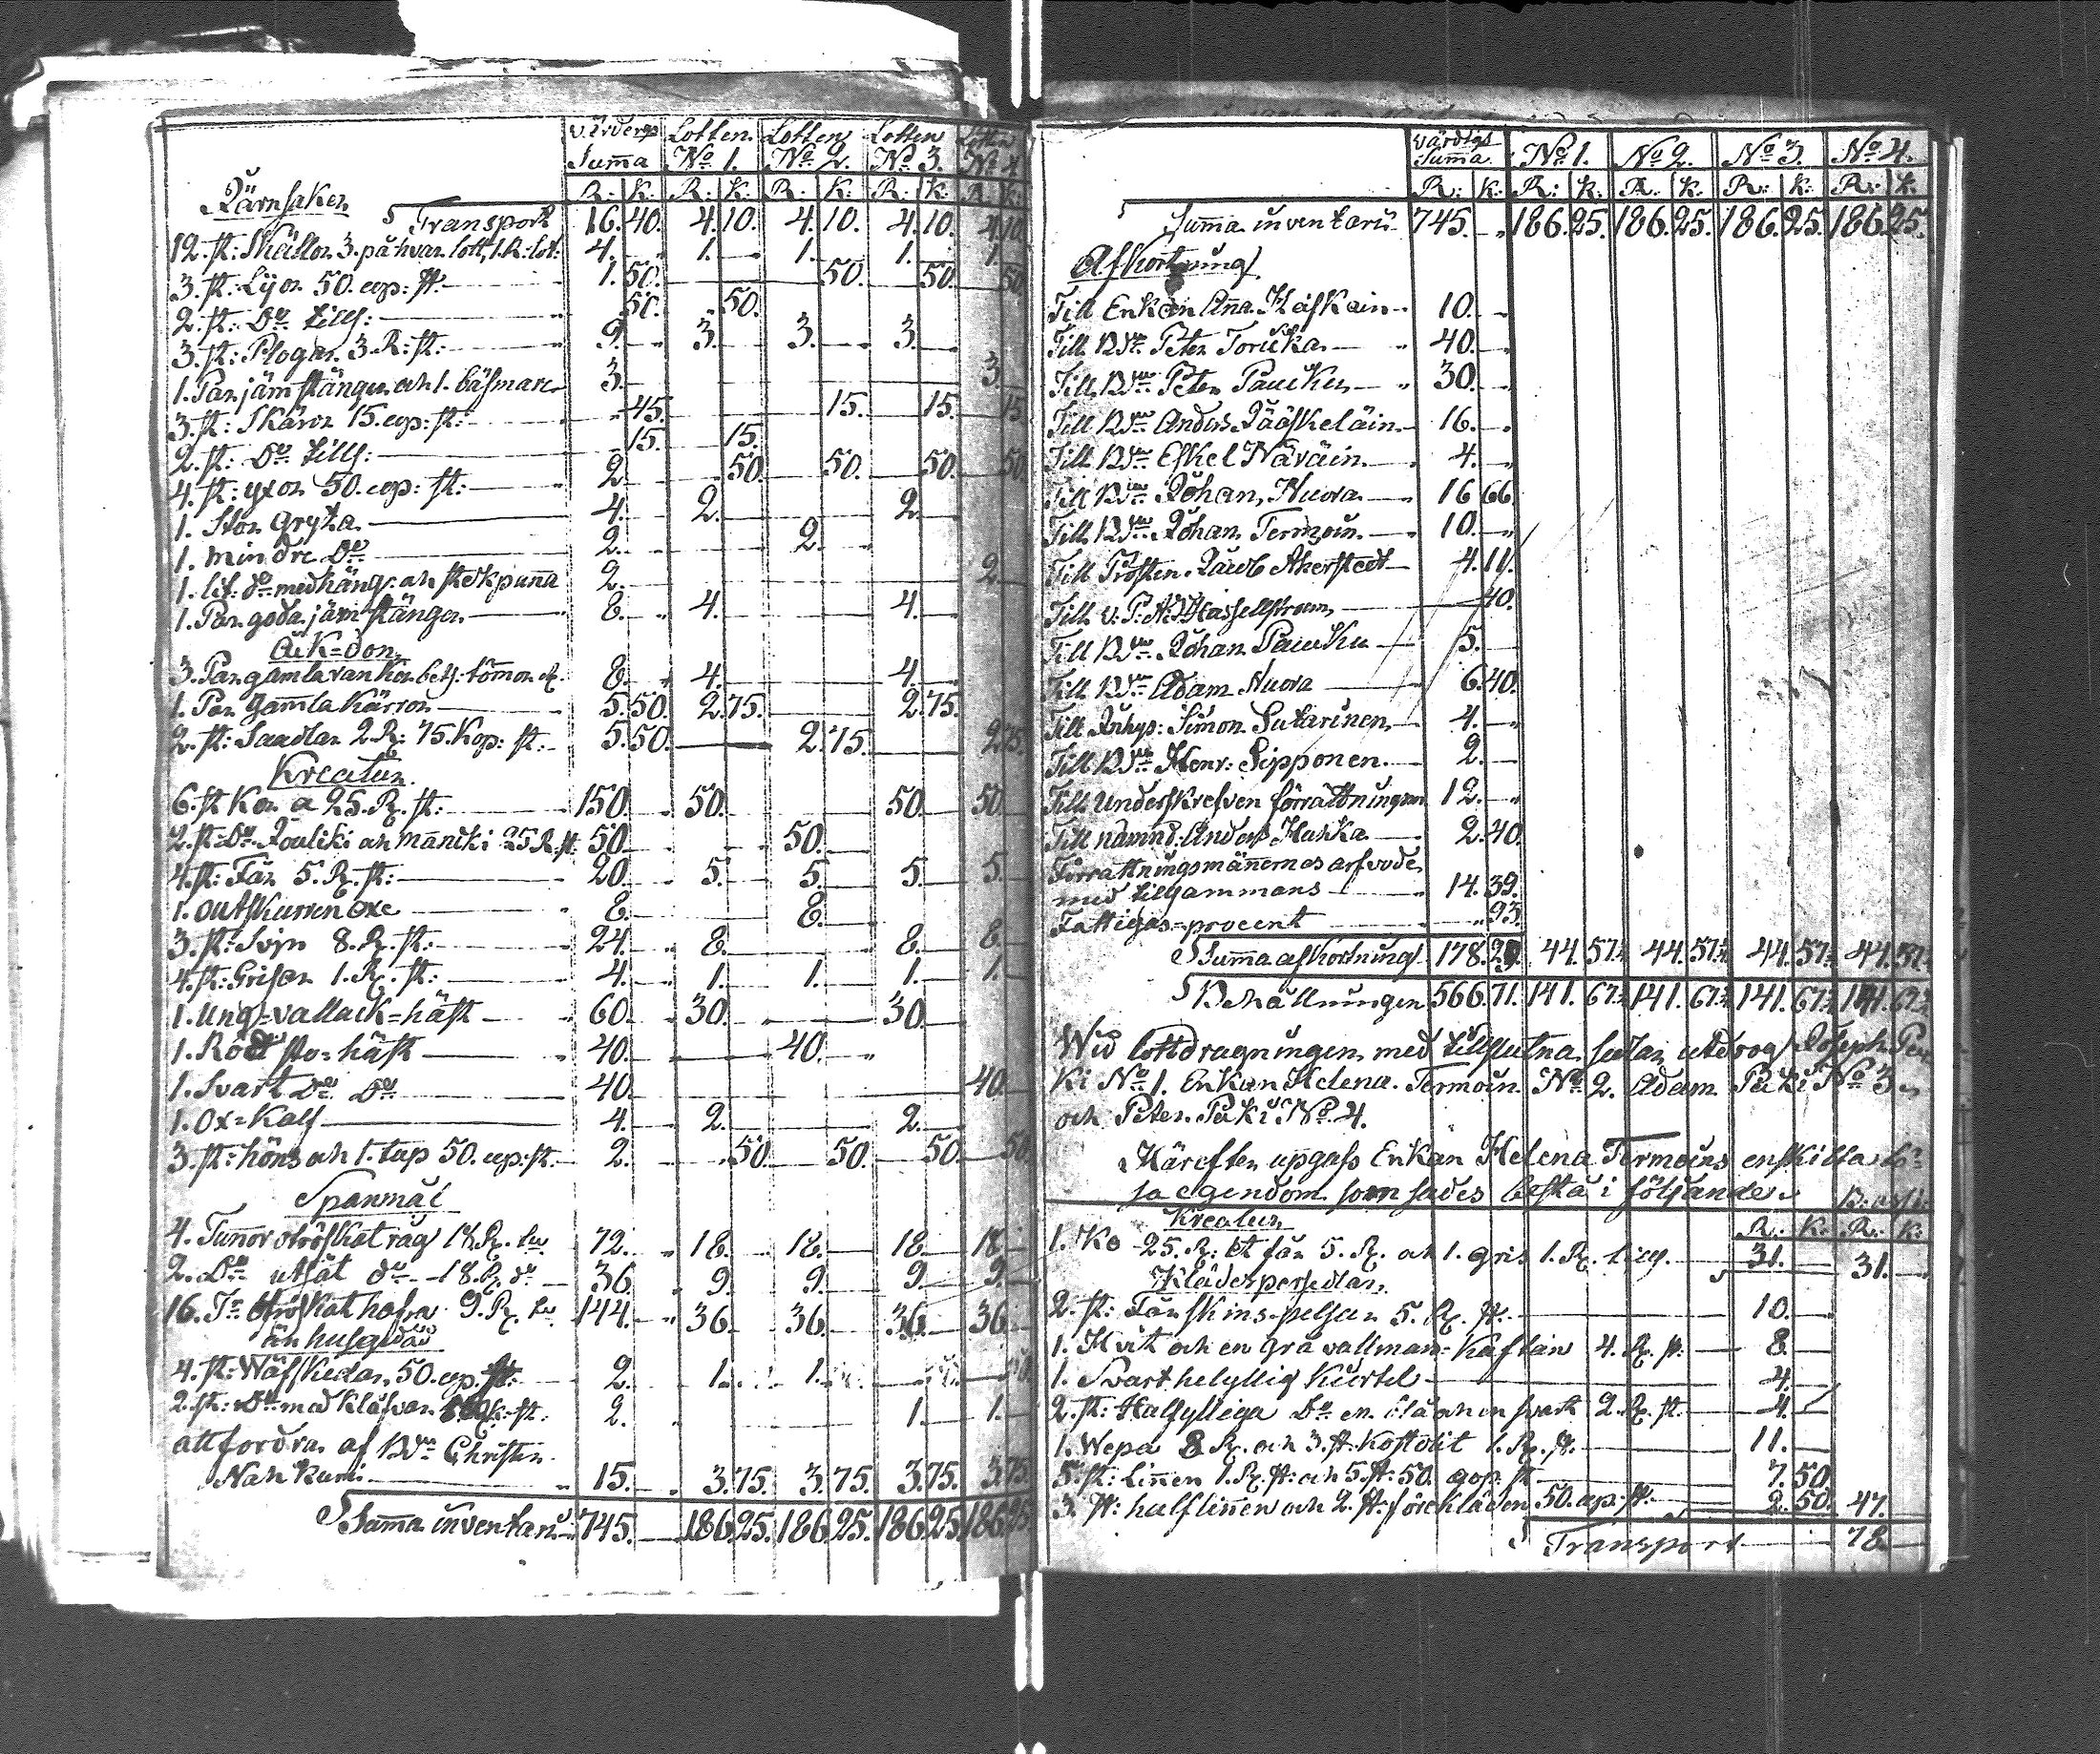 värdergs Lotten Lotten Lotten Lotten
Summa No 1. No 2. No 3. No 4
R: K: R: K: R: K: R: K: R: K:
Järnsaker
Transport 16. 40. 4. 10. 4. 10. 4. 10. 4. 10.
12. st: Skällor 3. på hvar lott, 1. R: lot: 4. 1. 1. 1. 1.
3. st: Lijor 50. cop: st. 1. 50. 50. 50. 50.
2. st: Do tills: 50. 50.
3. st: Plogar 3. R: st: 9. 3. 3. 3.
1. Par järn stänger och 1. bäsmare 3. 3.
3. st: Skäror 15. cop: st: 45. 15. 15. 15
2. st: Do tills: 15. 15.
4. st: yxor 50. cop: st: 2. 50. 50. 50. 50.
1. Stor Gryta 4. 2. 2.
1. mindre Do 2. 2.
1. lit: do med häng: och stekpanna 2. 2.
1. Par goda järn stänger 8. 4. 4.
Åk=don
3. Par gamla vankor bets: tömor R. 8. 4. 4.
1. Par Gamla Kärror 5. 50. 2. 75. 2. 75.
2. st: Saadlar 2. R: 75. Kop: st: 5. 50. 2. 75. 2. 75.
Kreatur
6. st Kor a 25. R. st: 150. 50. 50. 50.
2. st: Do Jouliki och Mancki 25 R. st. 50. 50.
4. st: Får 5. R. st: 20. 5. 5. 5. 5.
1. outskurren oxe 8. 8.
3. st: Svin 8. R. st: 24. 8. 8. 8.
4. st: Grisar 1. R. st: 4. 1. 1. 1. 1.
1. ung=vallack=häst 60. 30. 30.
1. Röd sto=häst 40. 40.
1. Svart Do Do 40. 40.
1. Ox=Kalf 4. 2. 2.
3. st: höns och 1. tup 50. cop: st. 2. 50. 50. 50. 50
Spanmål
4. Tunor otröskat råg 18. R. tu 72. 18. 18. 18. 18
2. Do utsåt do 18. R. do 36. 9. 9. 9. 9.
16. To otröskat hafra 9. R. tu 144. 36. 36. 36. 36
än husgeråd
4. st: Wäfskedar 50. cop. st: 2. 1. 1.
2. st: Do med Klåfvar st. 2. 1. 1.
att fordra af Bdn Christer
Nahkuri 15. 3. 75. 3. 75. 3. 75. 3. 75
Summa inventarii 745. 186. 25. 186. 25. 186. 25. 186. 25
värdigs
Summa No 1. No 2. No 3. No 4.
R: K: R: K: R: K: R: K: R: K:
Summa inventarii 745. 186. 25. 186. 25. 186. 25. 186. 25.
Afkortning
Till Enkan Anna Haskain 10.
Till Bdn Peter Toricka 40.
Till Bdn Peter Paucku 30.
Till Bdn Anders Jääskeläin 16.
Till Bdn Eskel Näväin 4.
Till Bdn Johan Huova 16 66
Till Bdn Johan Termoin 10.
Till Prosten Jacob Akerstedt 4. 11.
Till v: P: A: Hassellstrom 40.
Till Bdn Johan Paucku 5.
Till Bdn Adam Huova 6. 40.
Till Inhys: Simon Sutarinen 4.
Till Bdn Henr: Sipponen 2.
Till Underskrefven förrättningsm 12.
Till nämnd: Anders Haska 2. 40.
Förrättningsmännernes arfvode
med tillsammans 14. 39.
Fattigas=procent 93.
Summa afkortning 178. 29 44. 57¼ 44. 57¼ 44. 57¼ 44. 57¼
Behållningen 566. 71. 141. 67¾ 141. 67¾ 141. 67¾ 141. 67¾
Wid lottdragningen med tillslutna sedlar utdrog Joseph Pu
ki No 1. Enkan Helena Termoin No 2. Adam Puki No 3.
och Peter Puki No 4.
Härefter upgafs Enkan Helena Termoins enskilta lö=
sa egendom som sades bestå i följande.
Kreatur R. K. R. K:
1. Ko 25. R: et får 5. R. och 1. gris 1. R. tills. 31. 31.
Klädespersedlar
2. st: Fårskins-pelsar 5. R. st. 10.
1. Hvit och en grå vallmans=Kaftan 4. R. st: 8.
1. Svart helyllig Kiortel 4.
2. st: Halfylliga Do en blå och en svart 2. R. st. 4.
1. Wepa 8 R. och 3. st. 1. R. st. 11.
5. st: Linnen 1. R. st: och 5. st: 50. cop: st 7. 50
3. st: half linnen och 2. st: förekläden 50. cop: st. 2. 50. 47.
Transport 78.